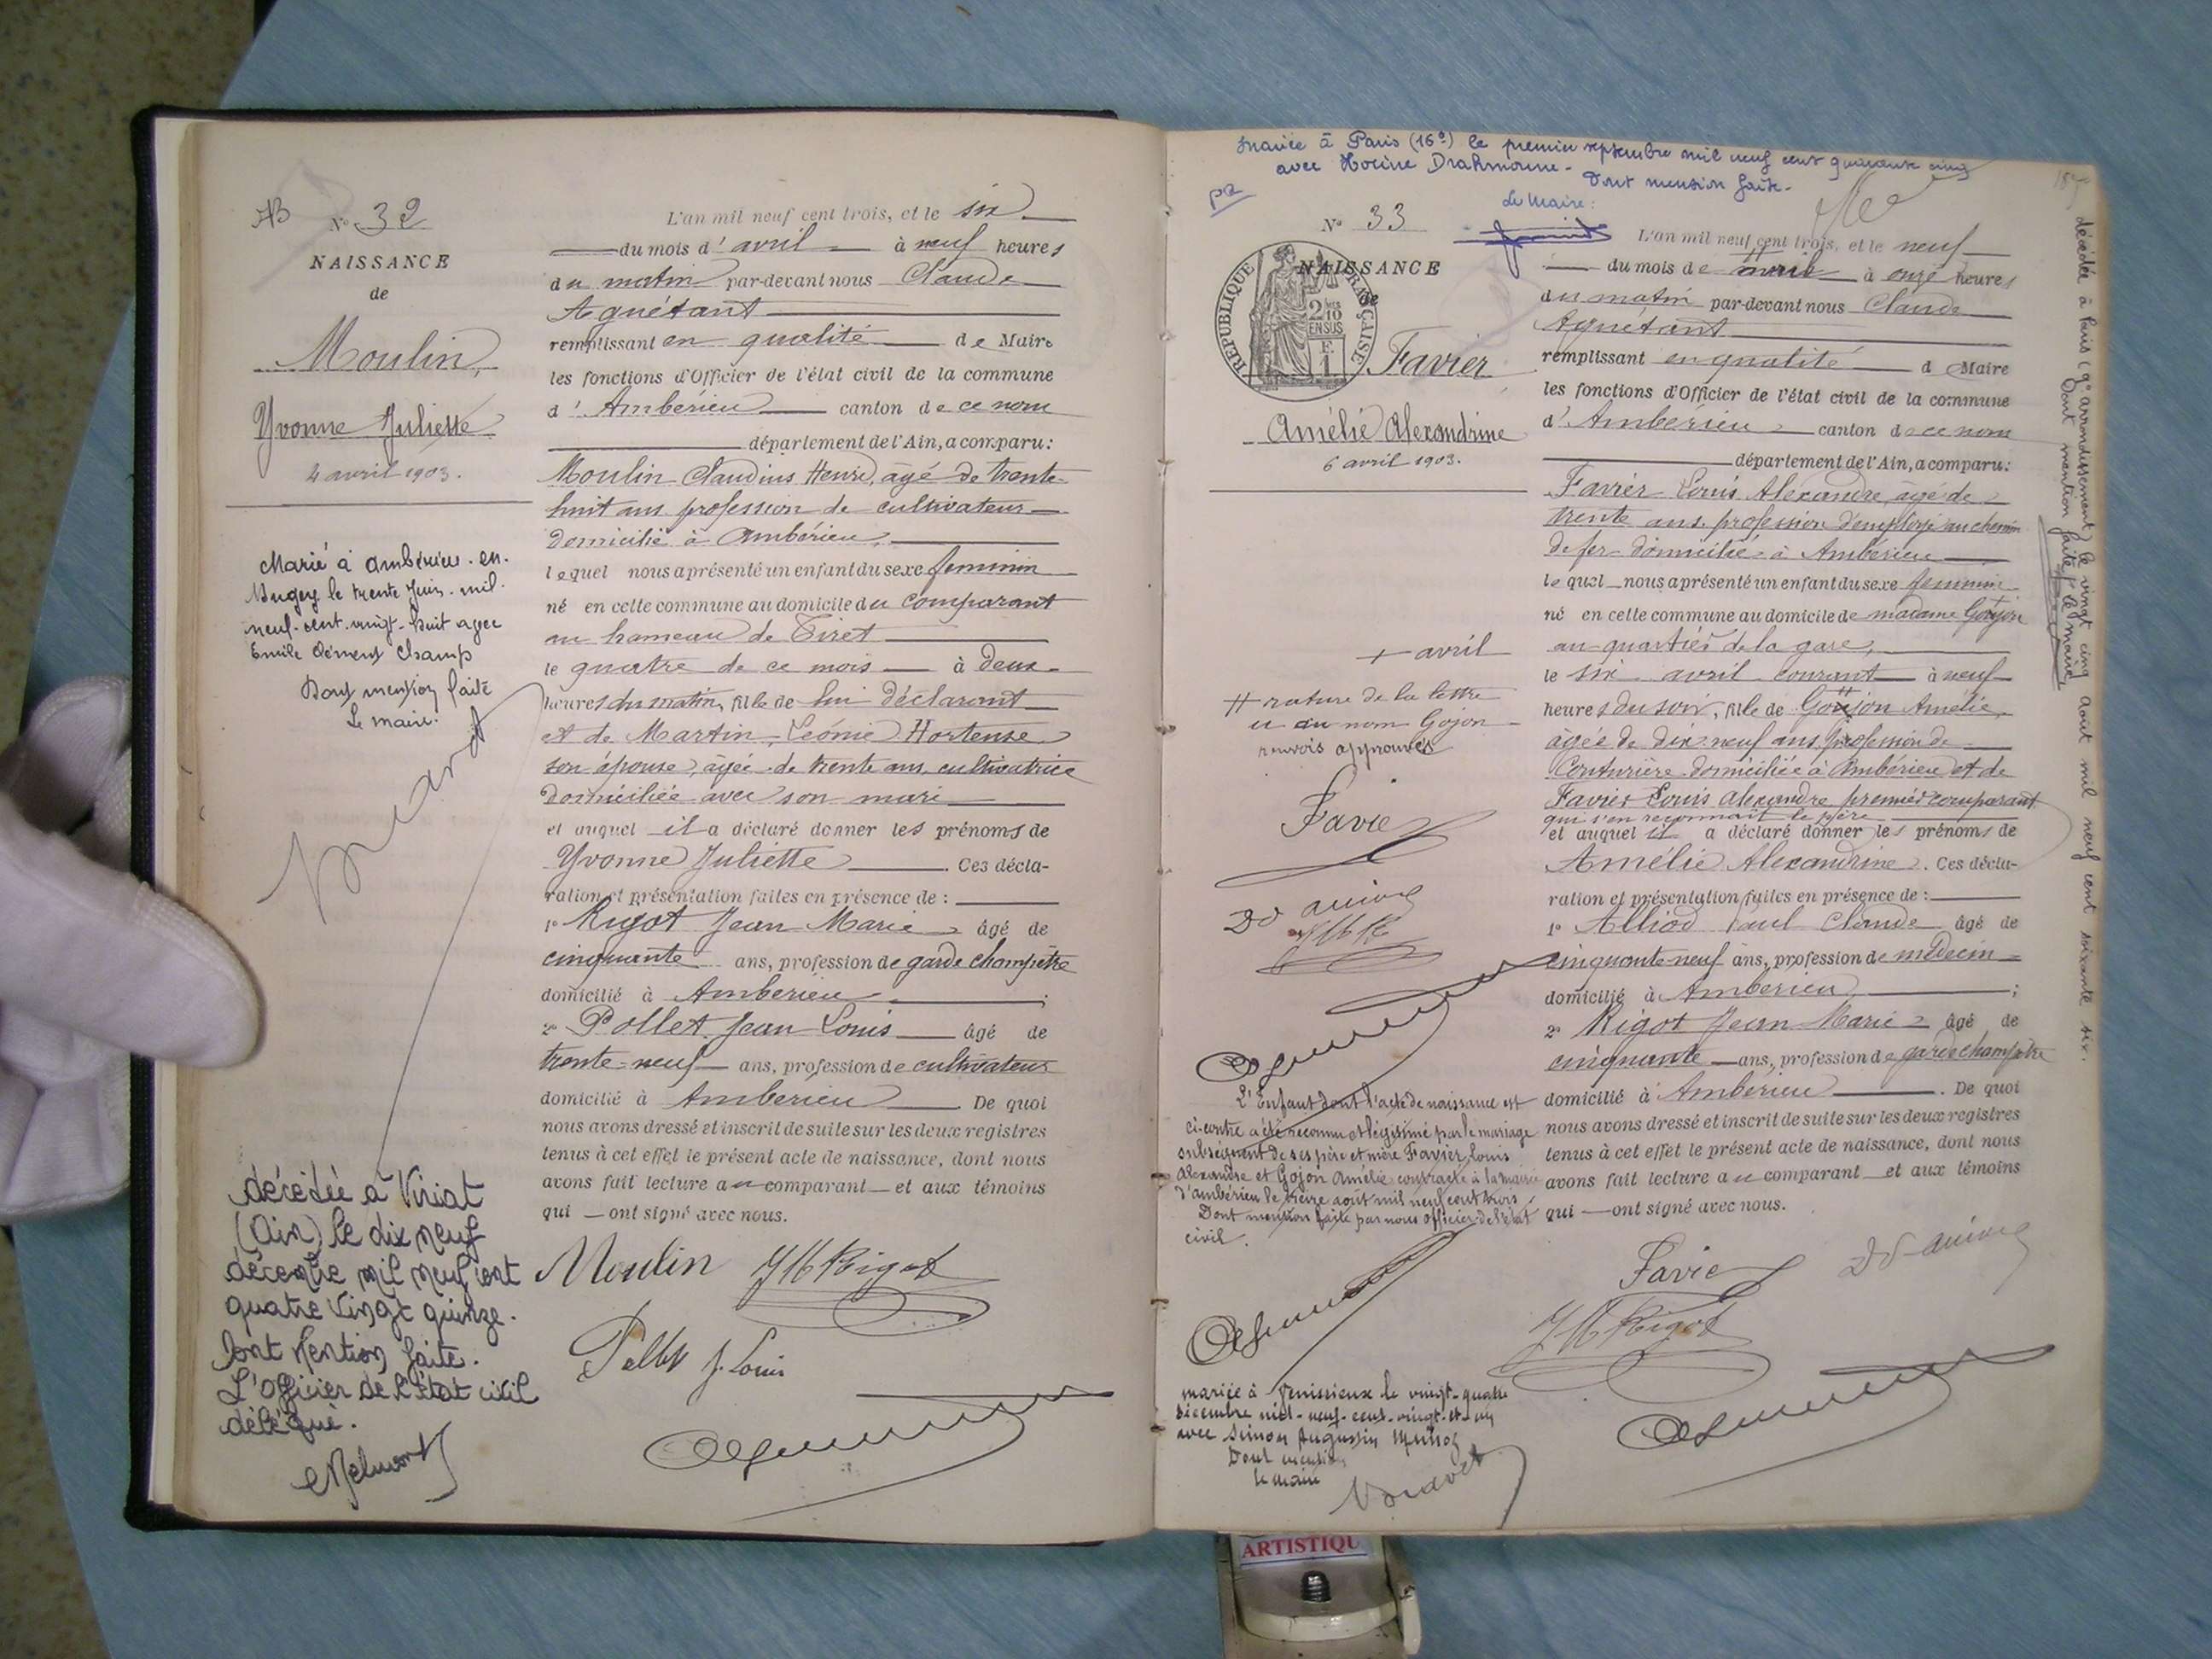 N° 32
NAISSANCE
de
Moulin,
Yvonne Juliette
4 avril 1903.
Marié à Ambérieu-en-
Bugey le trente Juin mil
neuf-cent-vingt-huit avec
Emile Clément Champ
Dont mention faite
Le maire.
décédée à Viriat
(Ain) le dix neuf
décembre mil neuf cent
quatre vingt quinze.
Dont Mention faite.
L'Officier de l'Etat civil
délégué.
L'an mil neuf cent trois, et le six
du mois d'avril à neuf heures
du matin par-devant nous Claude
Aguétant
remplissant en qualité de Maire
les fonctions d'Officier de l'état civil de la commune
d'Ambérieu canton de ce nom
département de l'Ain, a comparu:
Moulin Claudius Henri, âgé de trente-
huit ans profession de cultivateur
domicilié à Ambérieu,
lequel nous a présenté un enfant du sexe féminin
né en cette commune au domicile du comparant
au hameau de Tiret
le quatre de ce mois à deux
heures du matin, fille de lui déclarant
et de Martin, Léonie Hortense
son épouse, âgée de trente ans, cultivatrice
domiciliée avec son mari
et auquel il a déclaré donner les prénoms de
Yvonne Juliette. Ces décla-
ration et présentation faites en présence de :
1° Rigot Jean Marie âgé de
cinquante ans, profession de garde champêtre
domicilié à Ambérieu ;
2° Pollet Jean Louis âgé de
trente-neuf ans, profession de cultivateur
domicilié à Ambérieu. De quoi
nous avons dressé et inscrit de suite sur les deux registres
tenus à cet effet le présent acte de naissance, dont nous
avons fait lecture au comparant et aux témoins
qui ont signé avec nous.
Moulin JM Rigot
Pollet J. Louis
mariée à Paris (16e) le premier septembre mil neuf cent quarante cinq
avec Hocine Drahmoune.
Dont mention faite.
Le Maire:
N° 33
NAISSANCE
de
REPUBLIQUE FRANÇAISE
2/10 EN SUS
F. 1
Favier
Amélie Alexandrine
6 avril 1903.
+ avril
# rature de la lettre
u au nom Gojon
renvois approuvés
Favier
JMR
L'Enfant dont l'acte de naissance est
ci-contre a été reconnu et légitimé par le mariage
subséquent de ses père et mère Favier Louis
Alexandre et Gojon Amélie contracté à la mairie
d'Ambérieu le treize août mil neuf cent trois
Dont mention faite par nous officier de l'état
civil.
mariée à Vénissieux le vingt-quatre
décembre mil-neuf-cent-vingt-et-un
avec Simon Augustin Munoz
Dont mention
le maire
L'an mil neuf cent trois, et le neuf
du mois de à onze heures
du matin par-devant nous Claude
Aguétant
remplissant en qualité d Maire
les fonctions d'Officier de l'état civil de la commune
d'Ambérieu canton de ce nom
département de l'Ain, a comparu:
Favier Louis Alexandre, âgé de
trente ans, profession d'employé au chemin
de fer domicilié à Ambérieu
lequel nous a présenté un enfant du sexe féminin
né en cette commune au domicile de madame Goujon
au quartier de la gare,
le six avril courant à neuf
heures du soir, fille de Goujon Amélie,
âgée de dix-neuf ans, profession de
Couturière domiciliée à Ambérieu et de
Favier Louis Alexandre premier comparant
qui s'en reconnait le père
et auquel il a déclaré donner les prénoms de
Amélie Alexandrine. Ces décla-
ration et présentation faites en présence de :
1° Alliod Paul Claude âgé de
cinquante-neuf ans, profession de médecin
domicilié à Ambérieu ;
2° Rigot Jean Marie âgé de
cinquante ans, profession de garde champêtre
domicilié à Ambérieu. De quoi
nous avons dressé et inscrit de suite sur les deux registres
tenus à cet effet le présent acte de naissance, dont nous
avons fait lecture au comparant et aux témoins
qui ont signé avec nous.
Favier
JM Rigot
décédée à Paris (9e arrondissement) le vingt cinq août mil neuf cent soixante six.
Dont mention faite, le maire
ARTISTIQU